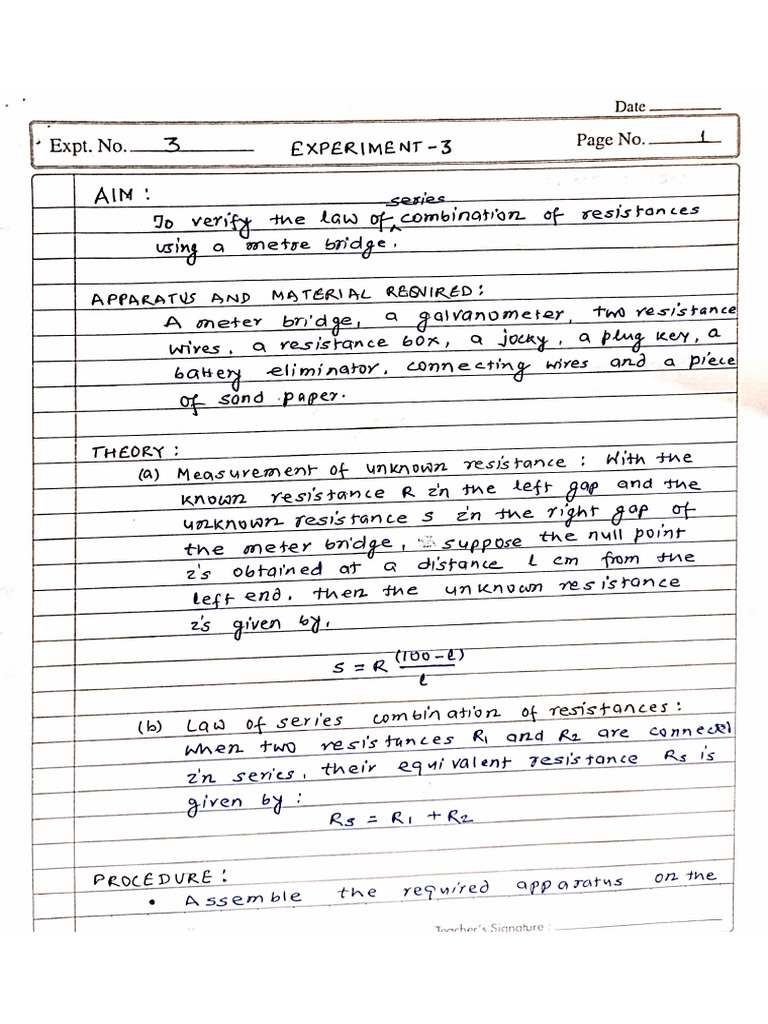 Date
Expt. No. 3 EXPERIMENT-3 Page No. 1
AIM :
series
To verify the law of ^ combination of resistances
using a metre bridge.
APPARATUS AND MATERIAL REQUIRED :
A meter bridge, a galvanometer, two resistance
wires, a resistance box, a jocky, a plug key, a
battery eliminator, connecting wires and a piece
of sand paper.
THEORY :
(a) Measurement of unknown resistance : With the
known resistance R in the left gap and the
unknown resistance S in the right gap of
the meter bridge, suppose the null point
is obtained at a distance l cm from the
left end. then the unknown resistance
is given by,
S = R (100-l)/l
(b) Law of series combination of resistances :
When two resistances R1 and R2 are connected
in series, their equivalent resistance Rs is
given by :
Rs = R1 + R2
PROCEDURE :
• Assemble the required apparatus on the
Teacher's Signature :